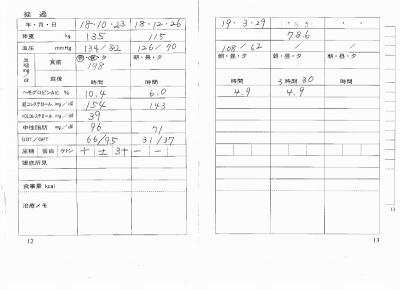 経過
年・月・日 18・10・23 18・12・26
体重 kg 135 115
血圧 mmHg 134/82 126/70
血糖 mg/dl 食前 朝・昼・夕 198 朝・昼・夕
食後 時間 時間
ヘモグロビンA1C % 10.4 6.0
総コレステロール mg/dl 154 143
HDLコレステロール mg/dl 39
中性脂肪 mg/dl 96 71
GOT/GPT 66/95 31/37
尿糖 蛋白 ケトン + ± 3+ − −
眼底所見
食事量 kcal
治療メモ
12
19・3・29
78.6
108/62 / /
朝・昼・夕 朝・昼・夕 朝・昼・夕
時間 3時間30 時間
4.9 4.9
13
13